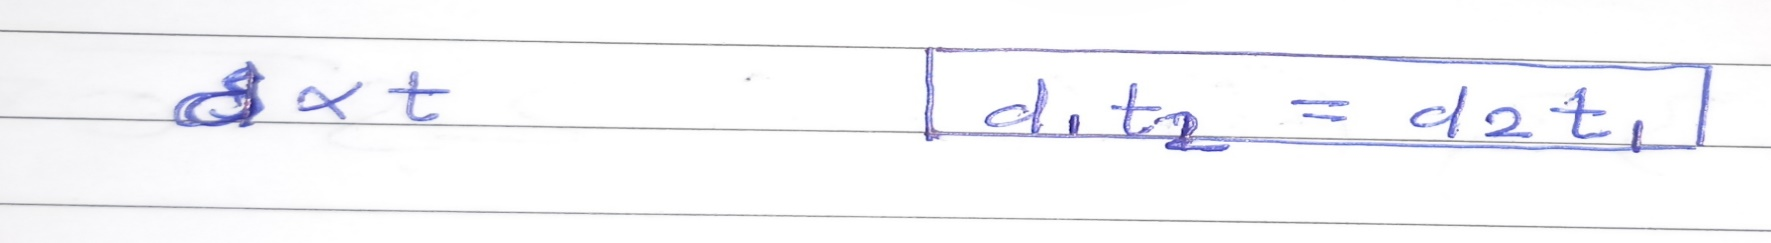 d ∝ t d₁t₂ = d₂t₁